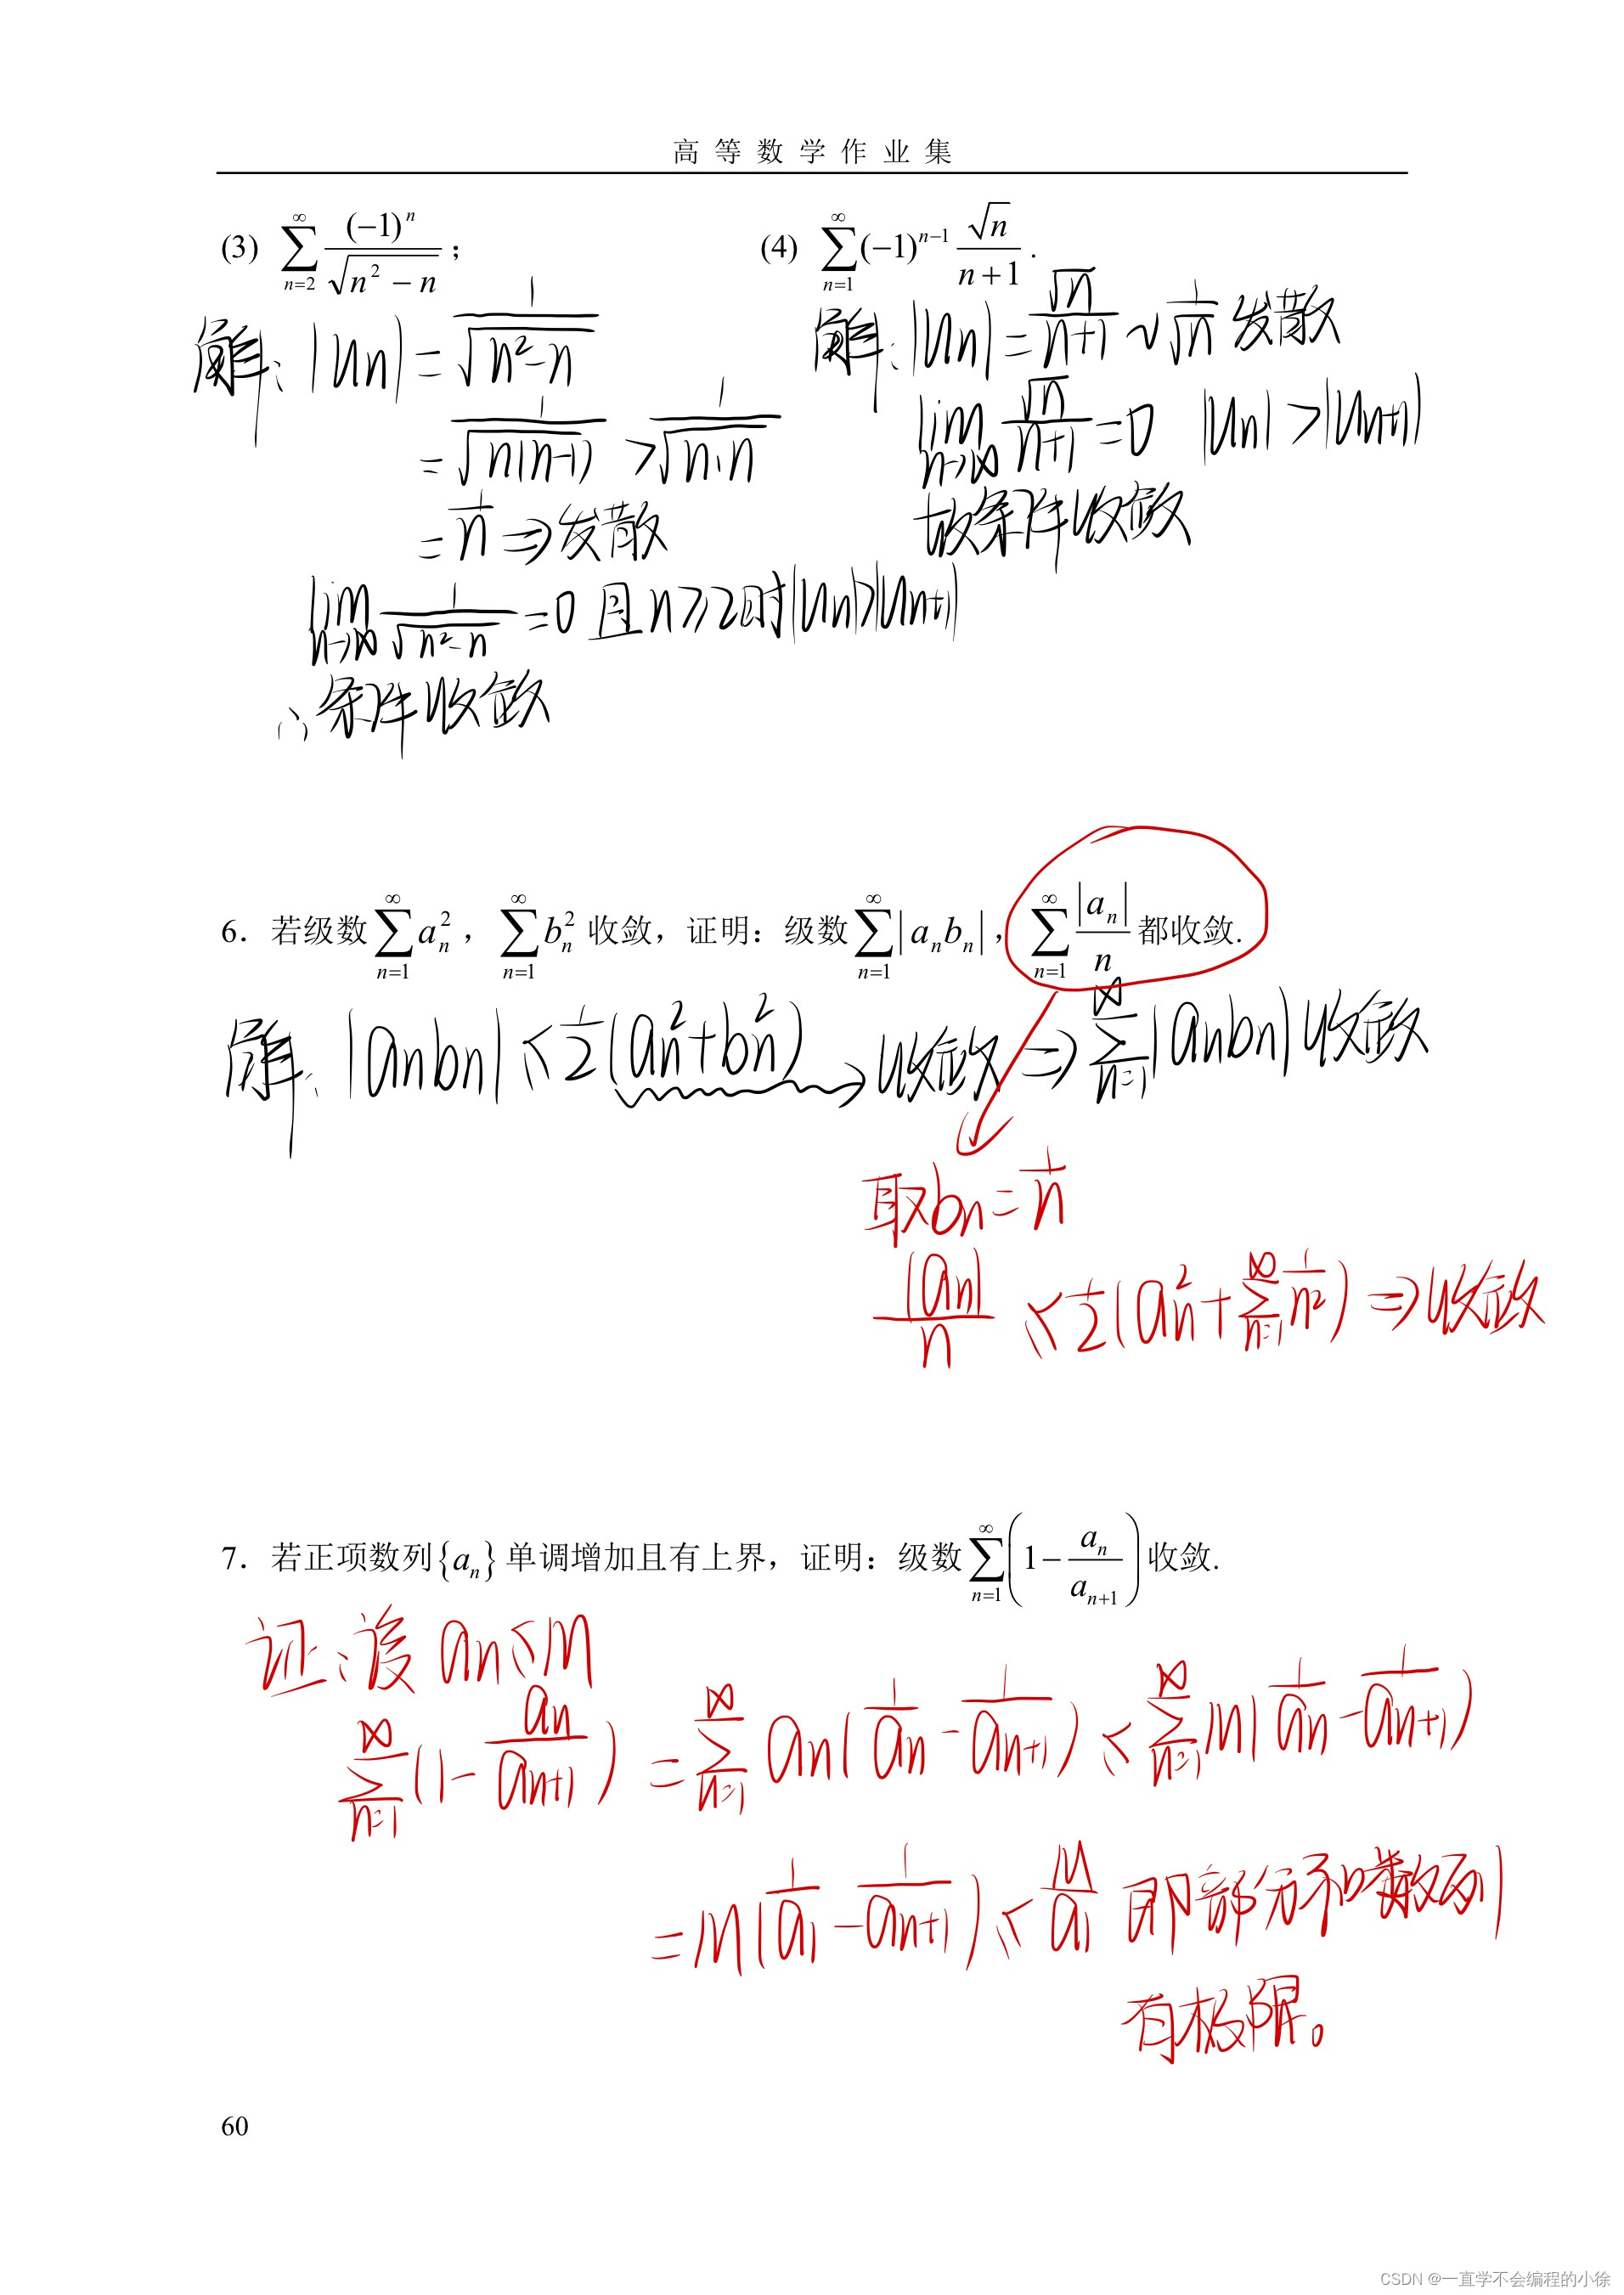 高等数学作业集
(3) $\sum_{n=2}^{\infty}\frac{(-1)^n}{\sqrt{n^2-n}}$;
(4) $\sum_{n=1}^{\infty}(-1)^{n-1}\frac{\sqrt{n}}{n+1}$.
解: $|u_n|=\frac{1}{\sqrt{n^2-n}}$
$=\frac{1}{\sqrt{n(n-1)}}>\frac{1}{\sqrt{n \cdot n}}$
$=\frac{1}{n}$ ⇒ 发散
$\lim_{n\to\infty}\frac{1}{\sqrt{n^2-n}}=0$ 且 $n\geqslant 2$ 时 $|u_n|>|u_{n+1}|$
∴条件收敛
解: $|u_n|=\frac{\sqrt{n}}{n+1}\sim\frac{1}{\sqrt{n}}$ 发散
$\lim_{n\to\infty}\frac{\sqrt{n}}{n+1}=0$ $|u_n|>|u_{n+1}|$
故条件收敛
6. 若级数 $\sum_{n=1}^{\infty}a_n^2$, $\sum_{n=1}^{\infty}b_n^2$ 收敛, 证明: 级数 $\sum_{n=1}^{\infty}|a_nb_n|$, $\sum_{n=1}^{\infty}\frac{|a_n|}{n}$ 都收敛.
解: $|a_nb_n|\leqslant\frac{1}{2}(a_n^2+b_n^2)$ → 收敛 ⇒ $\sum_{n=1}^{\infty}|a_nb_n|$ 收敛
取 $b_n=\frac{1}{n}$
$\frac{|a_n|}{n}\leqslant\frac{1}{2}(a_n^2+\sum_{n=1}^{\infty}\frac{1}{n^2})$ ⇒ 收敛
7. 若正项数列 $\{a_n\}$ 单调增加且有上界, 证明: 级数 $\sum_{n=1}^{\infty}\left(1-\frac{a_n}{a_{n+1}}\right)$ 收敛.
证: 设 $a_n\leqslant M$
$\sum_{n=1}^{\infty}(1-\frac{a_n}{a_{n+1}})=\sum_{n=1}^{\infty}a_n(\frac{1}{a_n}-\frac{1}{a_{n+1}})\leqslant\sum_{n=1}^{\infty}M(\frac{1}{a_n}-\frac{1}{a_{n+1}})$
$=M(\frac{1}{a_1}-\frac{1}{a_{n+1}})\leqslant\frac{M}{a_1}$ 即部分和数列
有极限。
60
CSDN @一直学不会编程的小徐